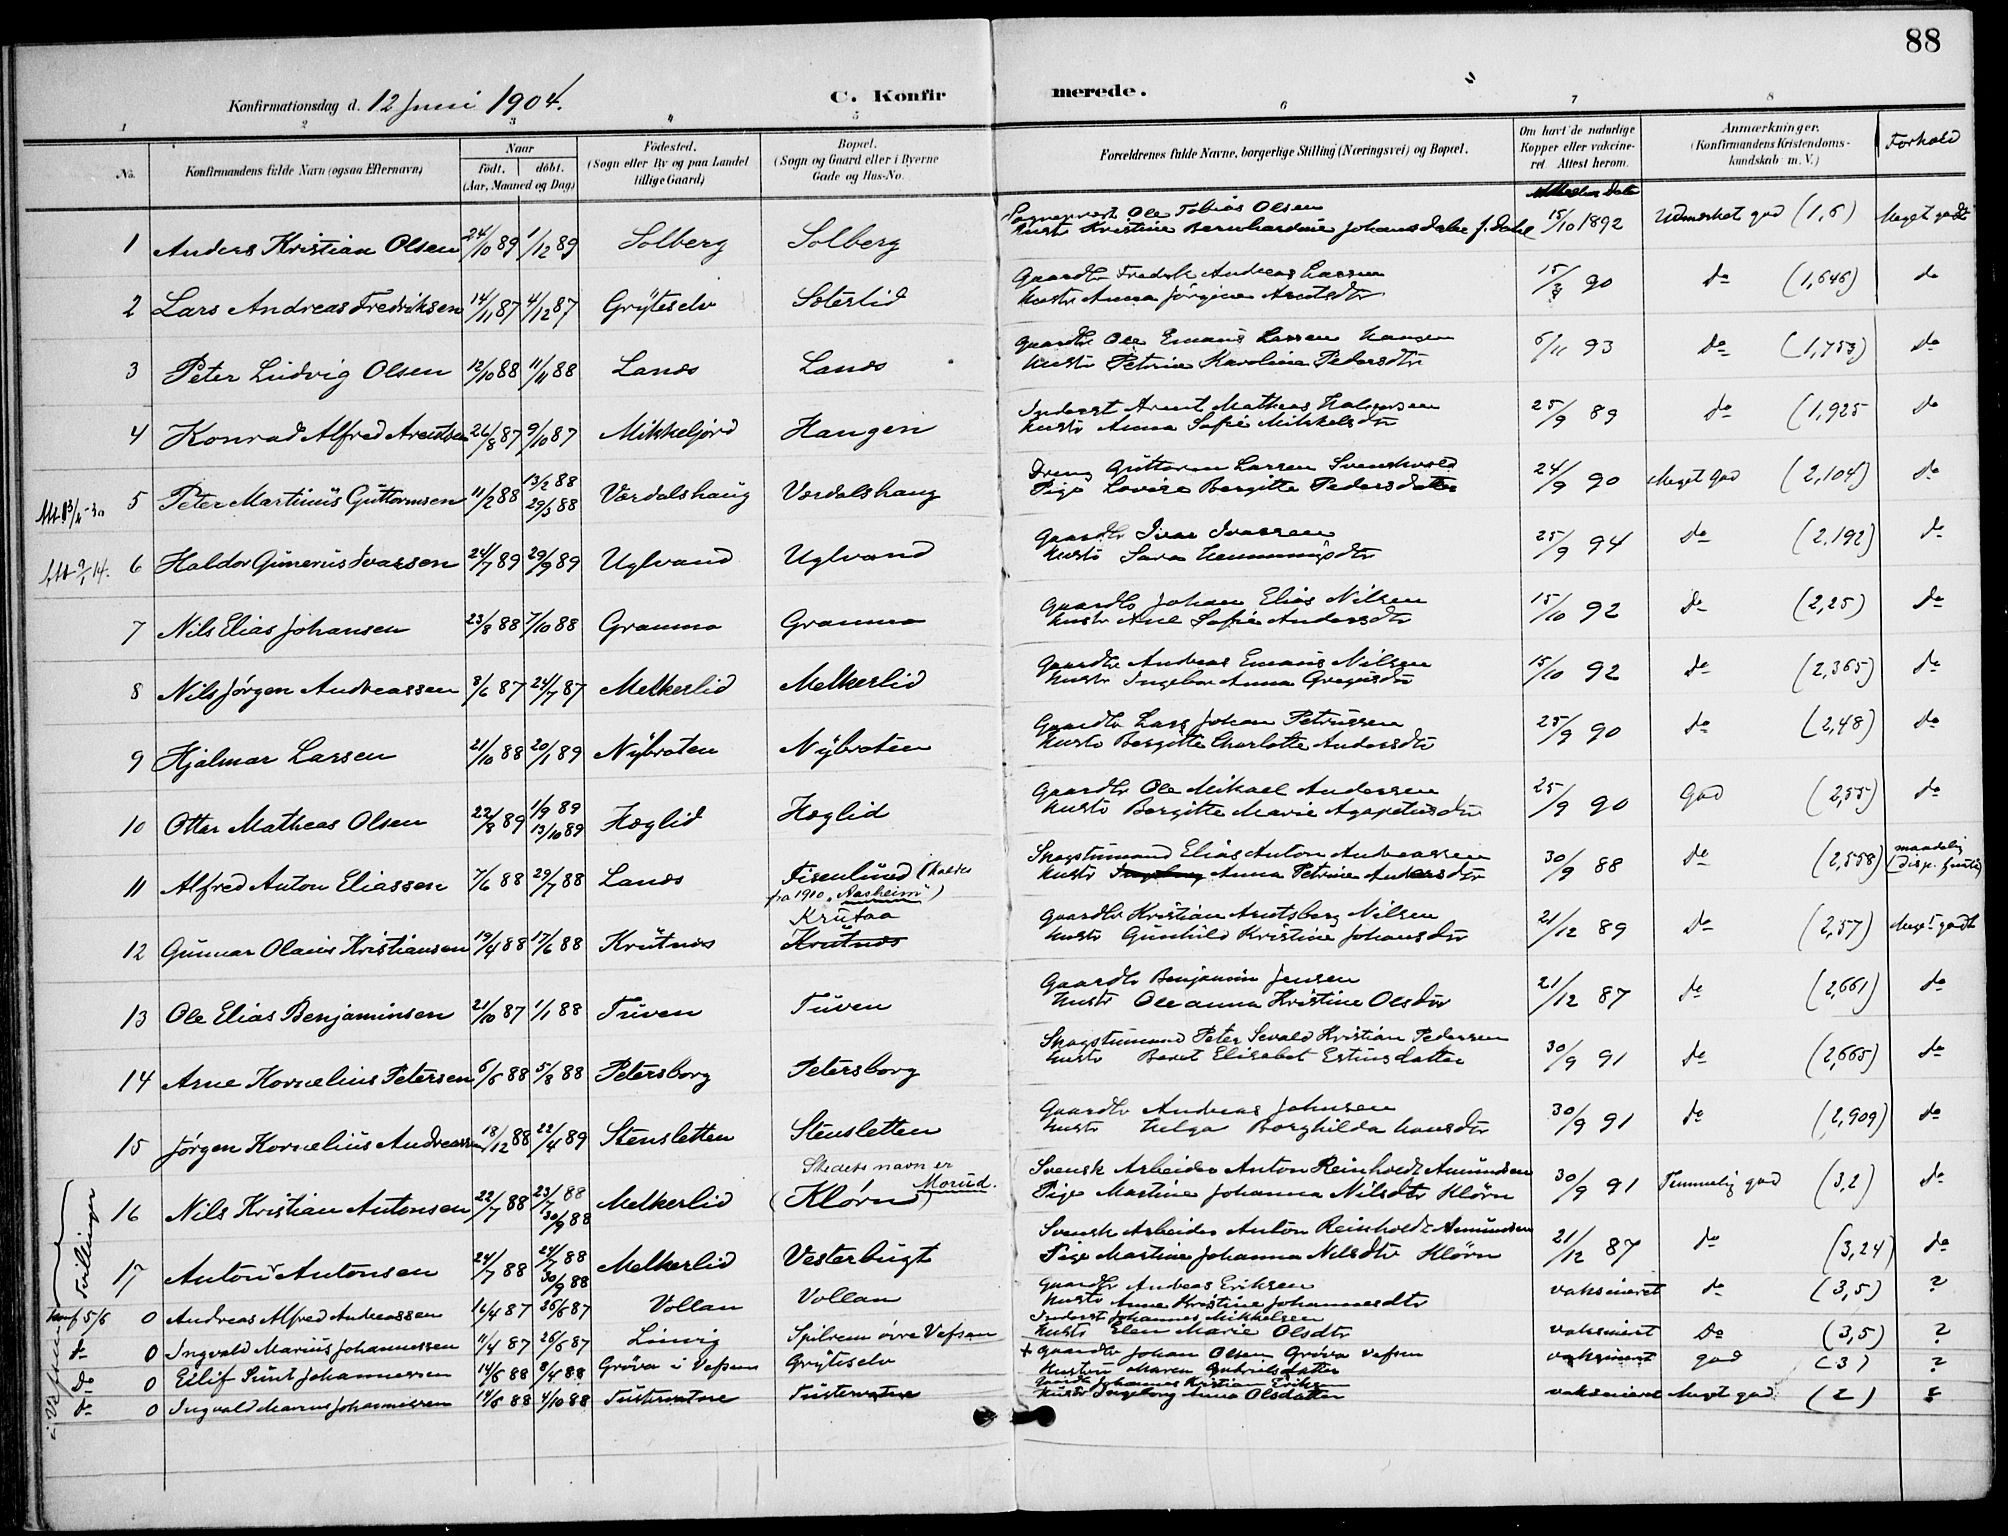 88
Konfirmationsdag d. 12 Juni 1904.
C. Konfir
merede.
1 2 3 4 5 6 7 8
No.
Konfirmandens fulde Navn (ogsaa Efternavn)
Naar
födt. döbt.
(Aar, Maaned og Dag)
Födested.
(Sogn eller By og paa Landet
tillige Gaard)
Bopæl.
(Sogn og Gaard eller i Byerne
Gade og Hus-No.
Forældrenes fulde Navne, borgerlige Stilling (Næringsvei) og Bopæl.
Om havt de naturlige
Kopper eller vakcine-
ret. Attest herom.
Anmærkninger.
(Konfirmandens Kristendoms-
kundskab m. V.)
Forhold
1 Anders Kristian Olsen 24/10 89 1/12 89 Solberg Solberg
Ole Tobias Olsen
Hustr Kristine Bernhardine 15/10 1892 Udmerket god (1,6) Meget godt
2 Lars Andreas Fredriksen 14/11 87 4/12 87 Gryteselv Soterlid
Gaardbr Fredrik Andreas Larsen
Hustr Anna Jørgine Arntsdtr 90 do (1,646) do
3 Peter Ludvig Olsen 12/10 88 11/11 88 Lands Lands
Gaardbr Ole Emans Larsen
Hustr Petrine Karoline Pedersdtr 6/11 93 do (1,753) do
4 Konrad Alfred Arentsen 26/8 87 9/10 87 Mikkeljord Haugen
Inderst Arent Mathias
Hustr Anna Sofie Mikkelsdtr 25/9 89 do (1,925 do
5 Peter Martinus Guttormsen 11/2 88 13/2 88 29/5 88 Værdalshaug Værdalshaug
Dreng Guttorm Larsen
Pige Lovise Bergitte Pedersdatter 24/9 90 Meget god (2,104) do
6 Haldor Gunerius Ivarsen 24/7 89 29/9 89 Uglvand Uglvand
Gaardbr Ivar Ivarsen
Hustr Sara Hemmingsdtr 25/9 94 do (2,192) do
7 Nils Elias Johansen 23/8 88 7/10 88 Granmo Granmo
Gaardbr Johan Elias Nilsen
Hustr Ane Sofie Andersdtr 15/10 92 do (2,25) do
8 Nils Jørgen Andreassen 8/6 87 24/7 87 Melkerlid Melkerlid
Gaardbr Andreas Emans Nilsen
Hustr Ingebor Anna 15/10 92 do (2,365) do
9 Hjalmar Larsen 21/10 88 20/1 89 Nybroten Nybroten
Gaardbr Lars Johan Petrussen
Hustr Bergitte Charlotte Andersdtr 25/9 90 do (2,48) do
10 Ottar Matheas Olsen 22/8 89 1/9 89 13/10 89 Hæglid Hæglid
Gaardbr Ole Mikael Andersen
Hustr Bergitte Marie Agapetusdtr 25/9 90 God (2,55) do
11 Alfred Anton Eliassen 7/6 88 29/7 88 Lands Fisenlund (kaldes
fra 1910 „Aasheim")
Skogstuemand Elias Anton Andreassen
Hustr Anna Petrine Andersdtr 30/9 88 do (2,558)
12 Gunnar Olaus Kristiansen 19/4 88 17/6 88 Krutnes Krutaa
Krutnes
Gaardbr Kristian Arntsberg Nilsen
Hustr Gunhild Kristine Johansdtr 21/12 89 do (2,57) Meget godt
13 Ole Elias Benjaminsen 21/10 87 1/1 88 Tuven Tuven
Gaardbr Benjamin Jensen
Hustr Oleanna Kristine Olsdtr 21/12 87 do (2,661) do
14 Arne Kornelius Petersen 6/6 88 5/8 88 Petersborg Petersborg
Skogstuemand Peter Sevald Kristian Pedersen
Hustr Beret Elisabet Estinsdatter 30/9 91 do (2,665) do
15 Jørgen Kornelius Andreassen 18/12 88 22/4 89 Stensletten Stensletten
Gaardbr Andreas Johnsen
Hustr Helga Borghilda Hansdtr 30/9 91 do (2,909) do
Tvillinger
16 Nils Kristian Antonsen 22/7 88 23/7 88 30/9 88 Melkerlid Stedets navn er
Morud.
(Klørn)
Svensk Arbeider Anton Reinholdt Amundsen
Pige Martine Johanna Nilsdtr Klörn 30/9 91 Temmelig god (3,2) do
17 Anton Antonsen 24/7 88 24/7 88 30/9 88 Melkerlid Vesterbugt
Svensk Arbeider Anton Reinholdt Amundsen
Pige Martine Johanna Nilsdtr Klörn 21/12 87 do (3,24) do
0 Andreas Alfred Andreassen 16/4 87 26/6 87 Vollan Vollan
Gaardbr Andreas Eriksen
Hustr Anne Kristine Johannesdtr vaksineret do (3,5) ?
do 0 Ingvald Marius Johannessen 11/4 87 26/6 87 Spilrem övre Vefsen
Inderst Johannes Mikkelsen
Hustr Elen Marie Olsdtr vaksinert Do (3,5) ?
Do 0 Eilif Johannessen 14/6 88 8/4 88 Grøva i Vefsen Grytiselv
+ Gaardbr Johan Olsen Grøva Vefsen
Hustru Maren Gabrielsdatter vaksinert god (3) ?
do 0 Ingvald Marius Johannessen 14/6 88 4/10 88 Tustervatne Tustervatne
Gaardbr Johannes Kristian Eriksen
Hustr Ingeborg Anna Olsdatter vaksineret Meget god (2)